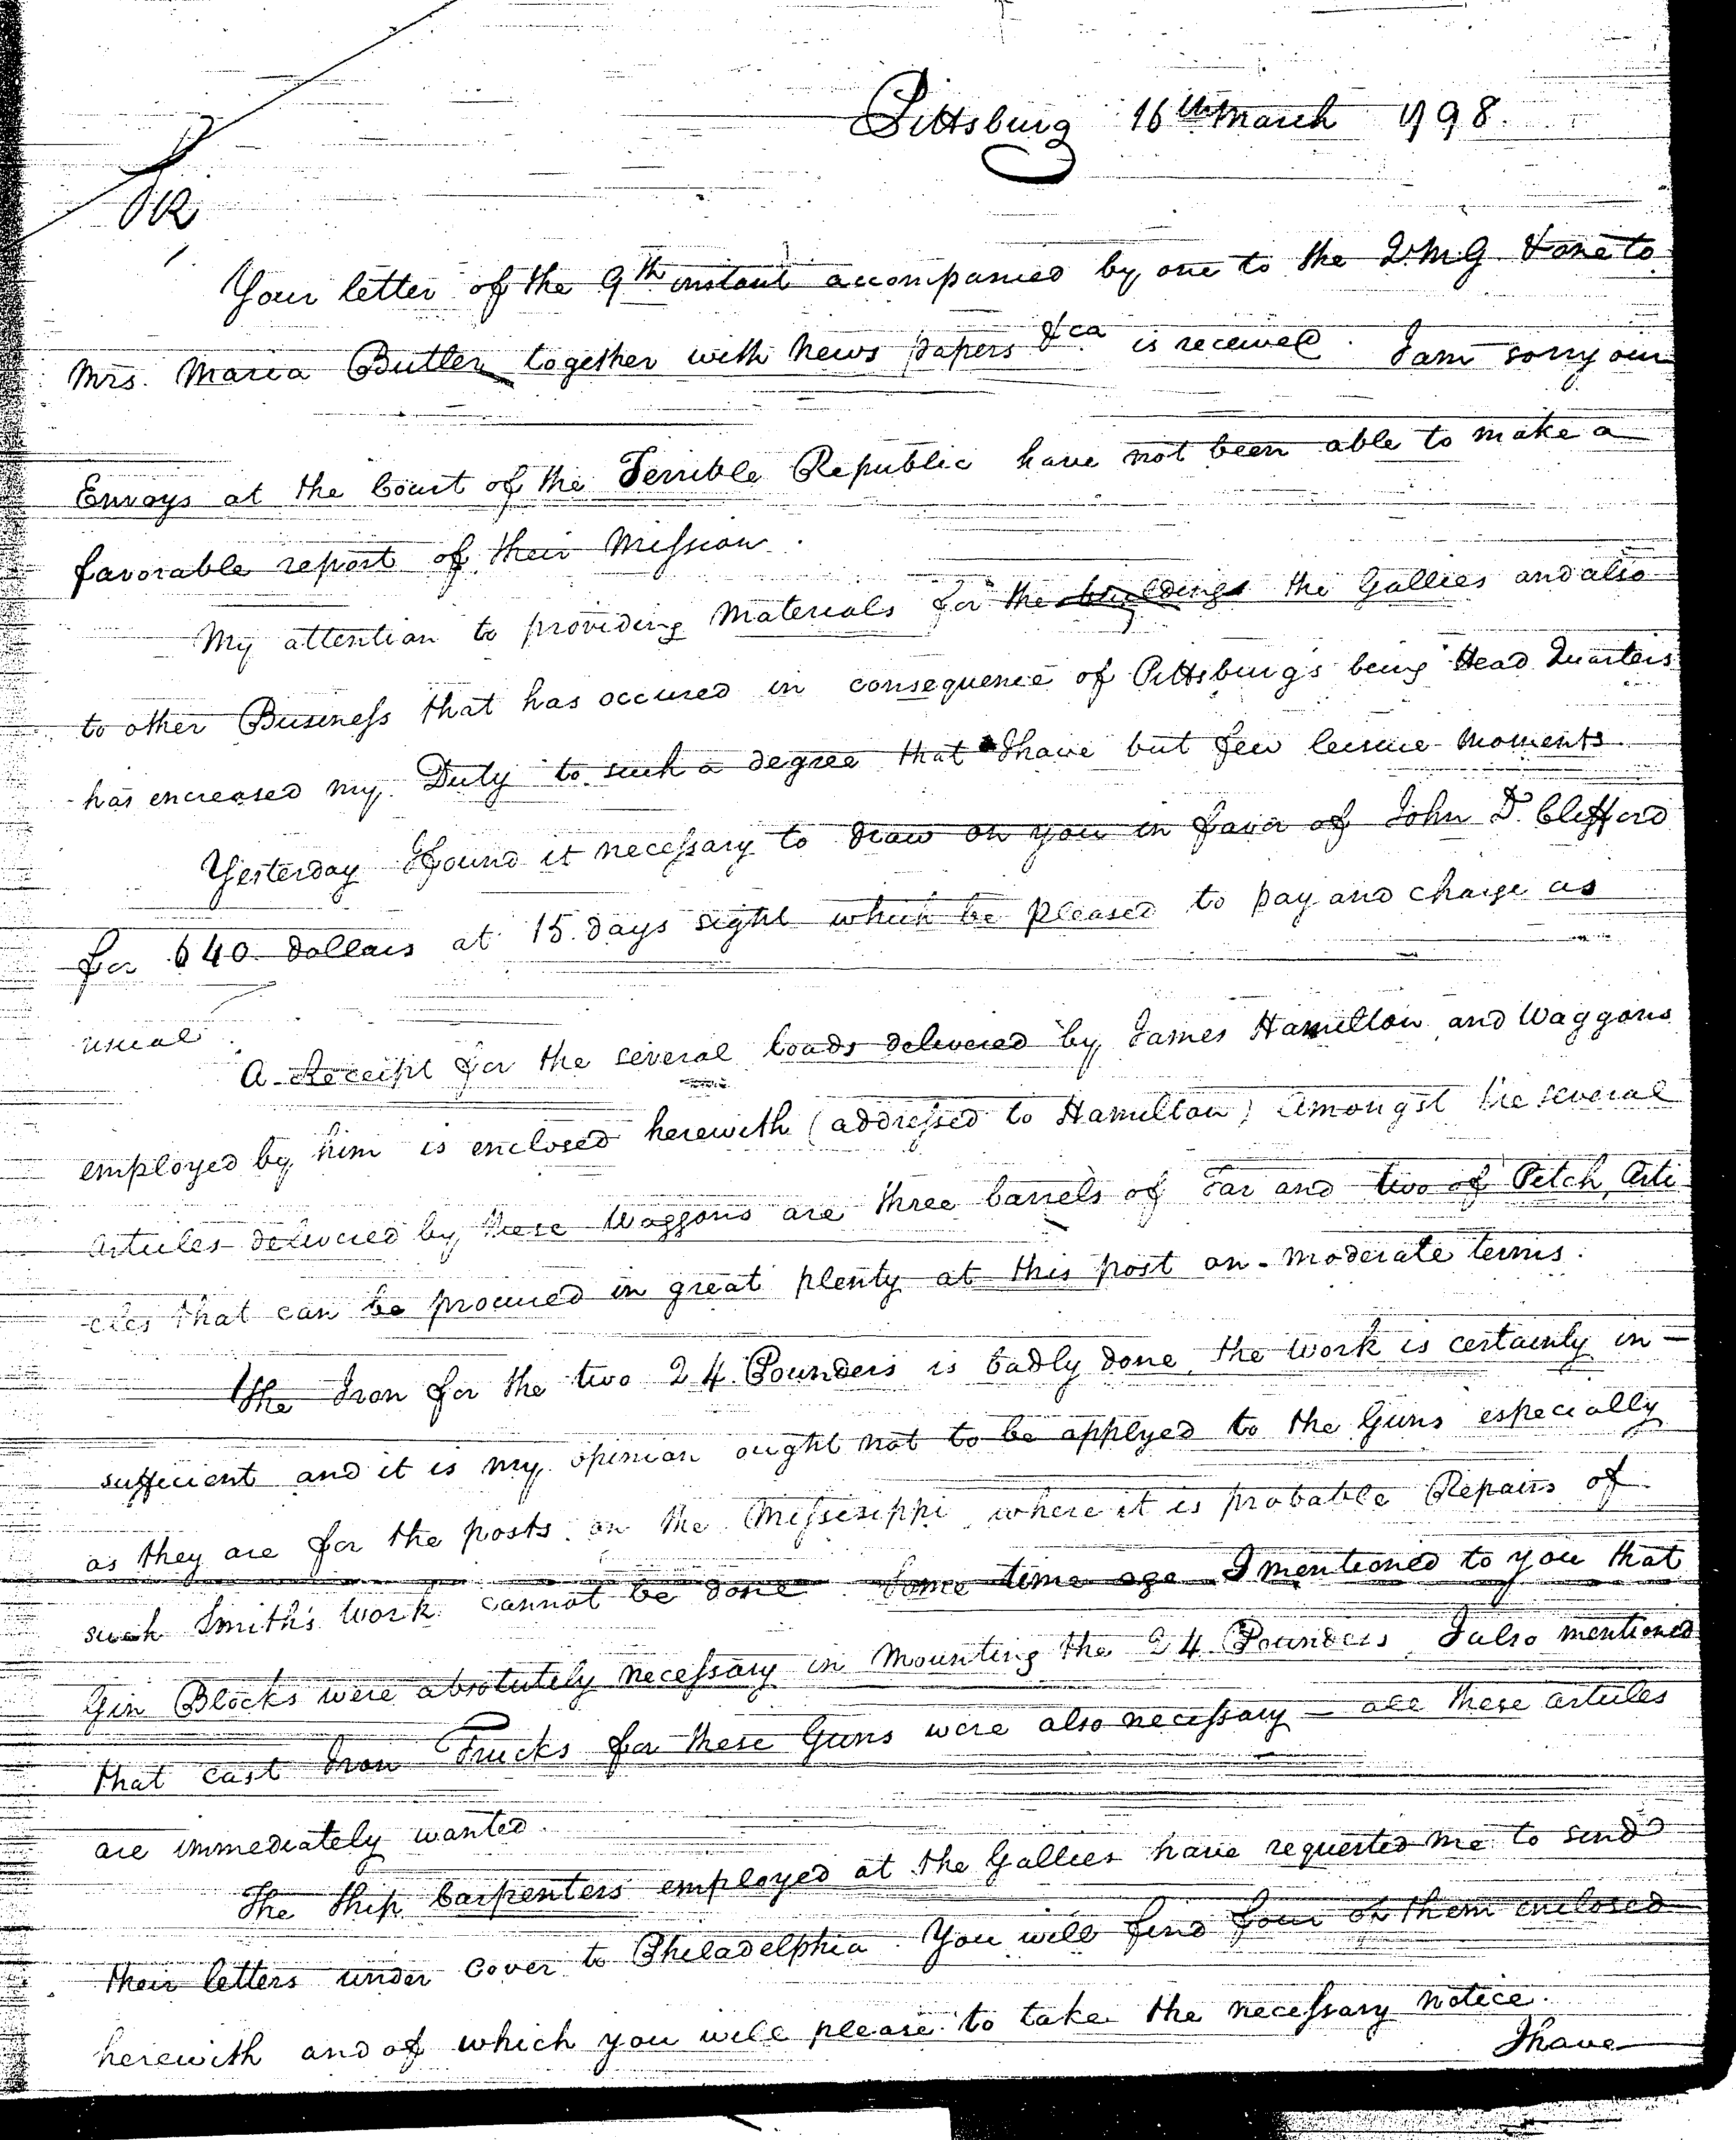 Pittsburg 16th March 1798.
Sir
Your letter of the 9th instant accompanied by one to the Q.M.G. & one to
Mrs. Maria Butler together with News papers &ca is received. I am sorry our
Envoys at the Court of the Terrible Republic have not been able to make a
favorable report of their Mission.
My attention to providing Materials for the buildings the Gallies and also
to other Business that has occured in consequence of Pittsburg's being Head Quarters
has encreased my Duty to such a degree that I have but few leisure moments.
Yesterday I found it necessary to draw on you in favor of John D. Clifford
for 640 dollars at 15 days sight which be pleased to pay and charge as
usual.
A Receipt for the several loads delivered by James Hamilton and Waggons
employed by him is enclosed herewith (addressed to Hamilton) Amongst the several
articles delivered by these Waggons are three barrels of Tar and two of Pitch, Arti
-cles that can be procured in great plenty at this post on moderate terms.
The Iron for the two 24 Pounders is badly done, the work is certainly in-
sufficient and it is my opinion ought not to be applyed to the Guns especially
as they are for the posts on the Missisippi where it is probable Repairs of
such Smith's work cannot be done. Some time ago I mentioned to you that
Gin Blocks were absolutely necessary in Mounting the 24 Pounders, I also mentioned
that cast Iron Trucks for these Guns were also necessary — all these articles
are immediately wanted.
The Ship Carpenters employed at the Gallies have requested me to send
their letters under cover to Philadelphia. You will find four of them enclosed
herewith and of which you will please to take the necessary notice.
I have